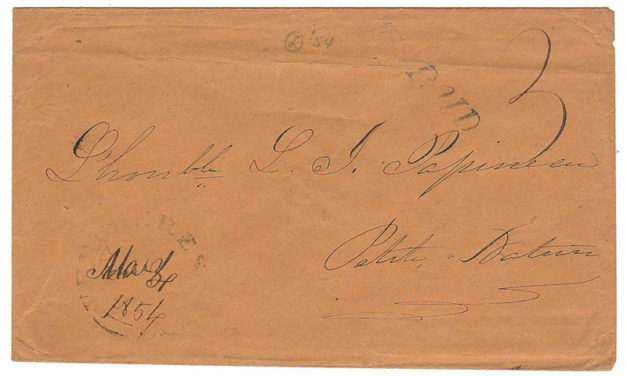 '54
PAID
3
L'honble L. J. Papineau
Petite Nation
1854